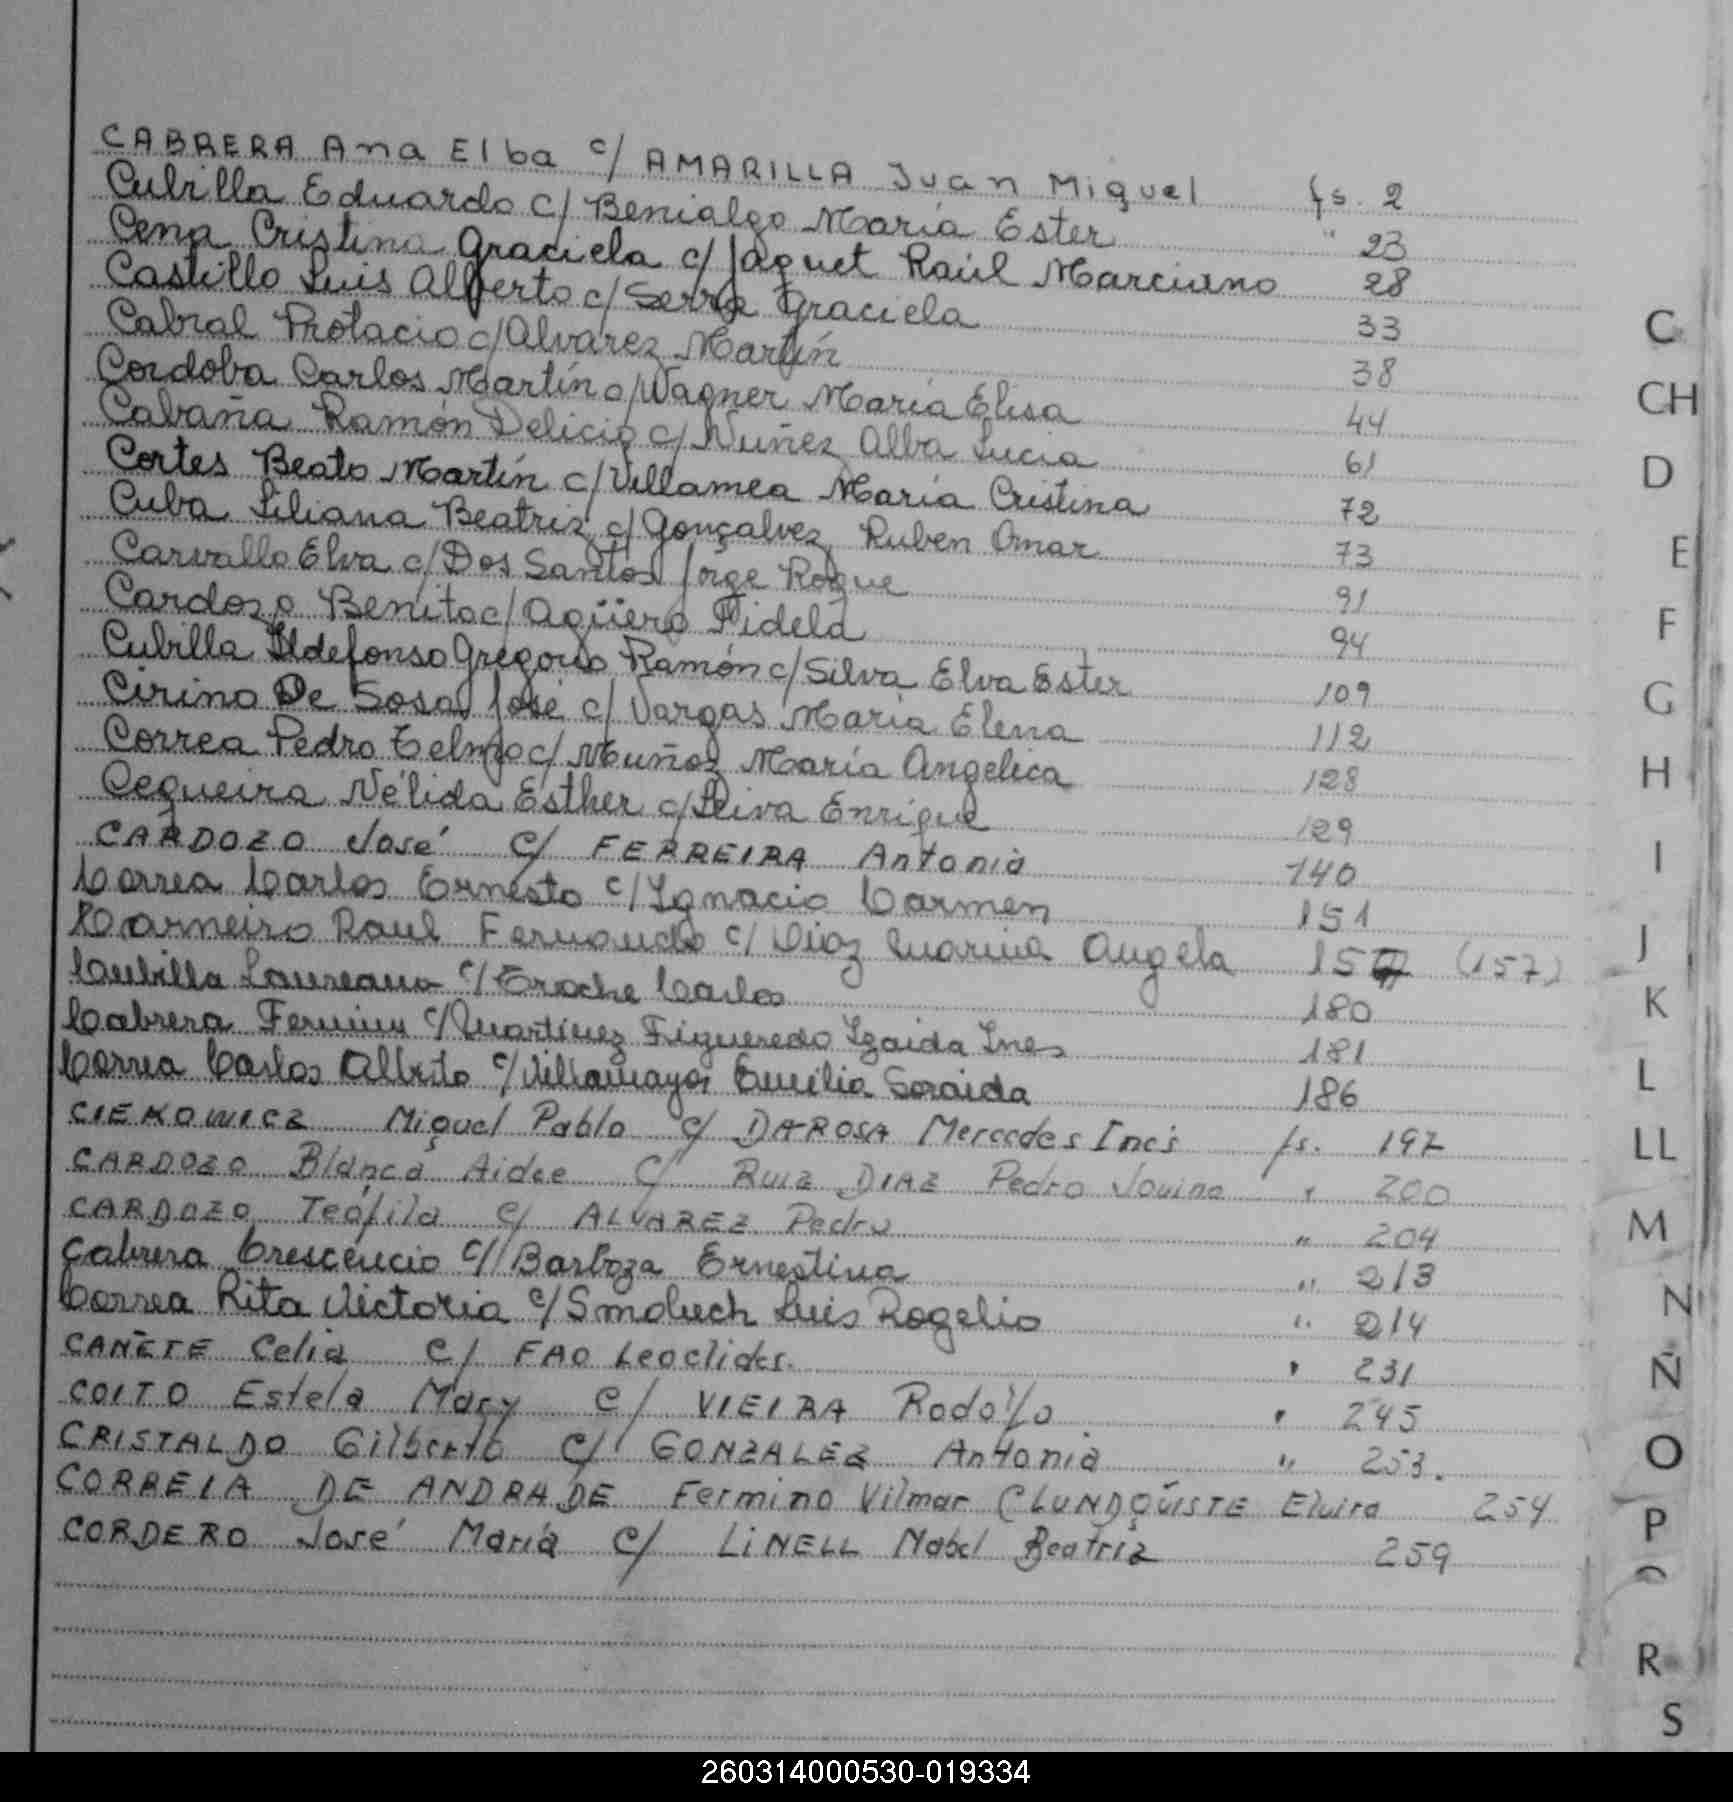 CABRERA Ana Elba c/ AMARILLA Juan Miguel fs. 2
Cubilla Eduardo c/ Benialgo María Ester " 23
Cena Cristina Graciela c/ Jaquet Raúl Marciano 28
Castillo Luis Alberto c/ Serra Graciela 33
Cabral Protacio c/ Alvarez Martín 38
Cordoba Carlos Martín c/ Wagner María Elisa 44
Cabaña Ramón Delicio c/ Nuñez Alba Lucia 61
Cortes Beato Martín c/ Villamea María Cristina 72
Cuba Liliana Beatriz c/ Gonçalvez Ruben Omar 73
Carvallo Elva c/ Dos Santos Jorge Roque 91
Cardozo Benito c/ Agüero Fidela 94
Cubilla Ildefonso Gregorio Ramón c/ Silva Elva Ester 109
Cirino De Sosa José c/ Vargas María Elena 112
Correa Pedro Telmo c/ Muñoz María Angelica 128
Cequeira Nélida Esther c/ Leiva Enrique 129
CARDOZO José c/ FERREIRA Antonia 140
Correa Carlos Ernesto c/ Ignacio Carmen 151
Carneiro Raul Fernando c/ Diaz Marina Angela 157 (157)
Cubilla Laureana c/ Eroche Carlos 180
Cabrera Fermin c/ Martinez Figueredo Izaida Ines 181
Correa Carlos Alberto c/ Villamayor Emilia Soraida 186
CIEKOWICZ Miguel Pablo c/ DAROSA Mercedes Inés fs. 197
CARDOZO Blanca Aidee c/ RUIZ DIAZ Pedro Jovino " 200
CARDOZO Teófila c/ ALVAREZ Pedro " 204
Cabrera Crescencio c/ Barboza Ernestina " 213
Correa Rita Victoria c/ Smoluch Luis Rogelio " 214
CAÑETE Celia c/ FAO Leoclides. " 231
COITO Estela Mary c/ VIEIRA Rodolfo " 245
CRISTALDO Gilberto c/ GONZALEZ Antonia " 253.
CORREIA DE ANDRADE Fermino Vilmar C/LUNDQÜISTE Elvira 254
CORDERO José María c/ LINELL Mabel Beatriz 259
C
CH
D
E
F
G
H
I
J
K
L
LL
M
N
Ñ
O
P
R
S
260314000530-019334